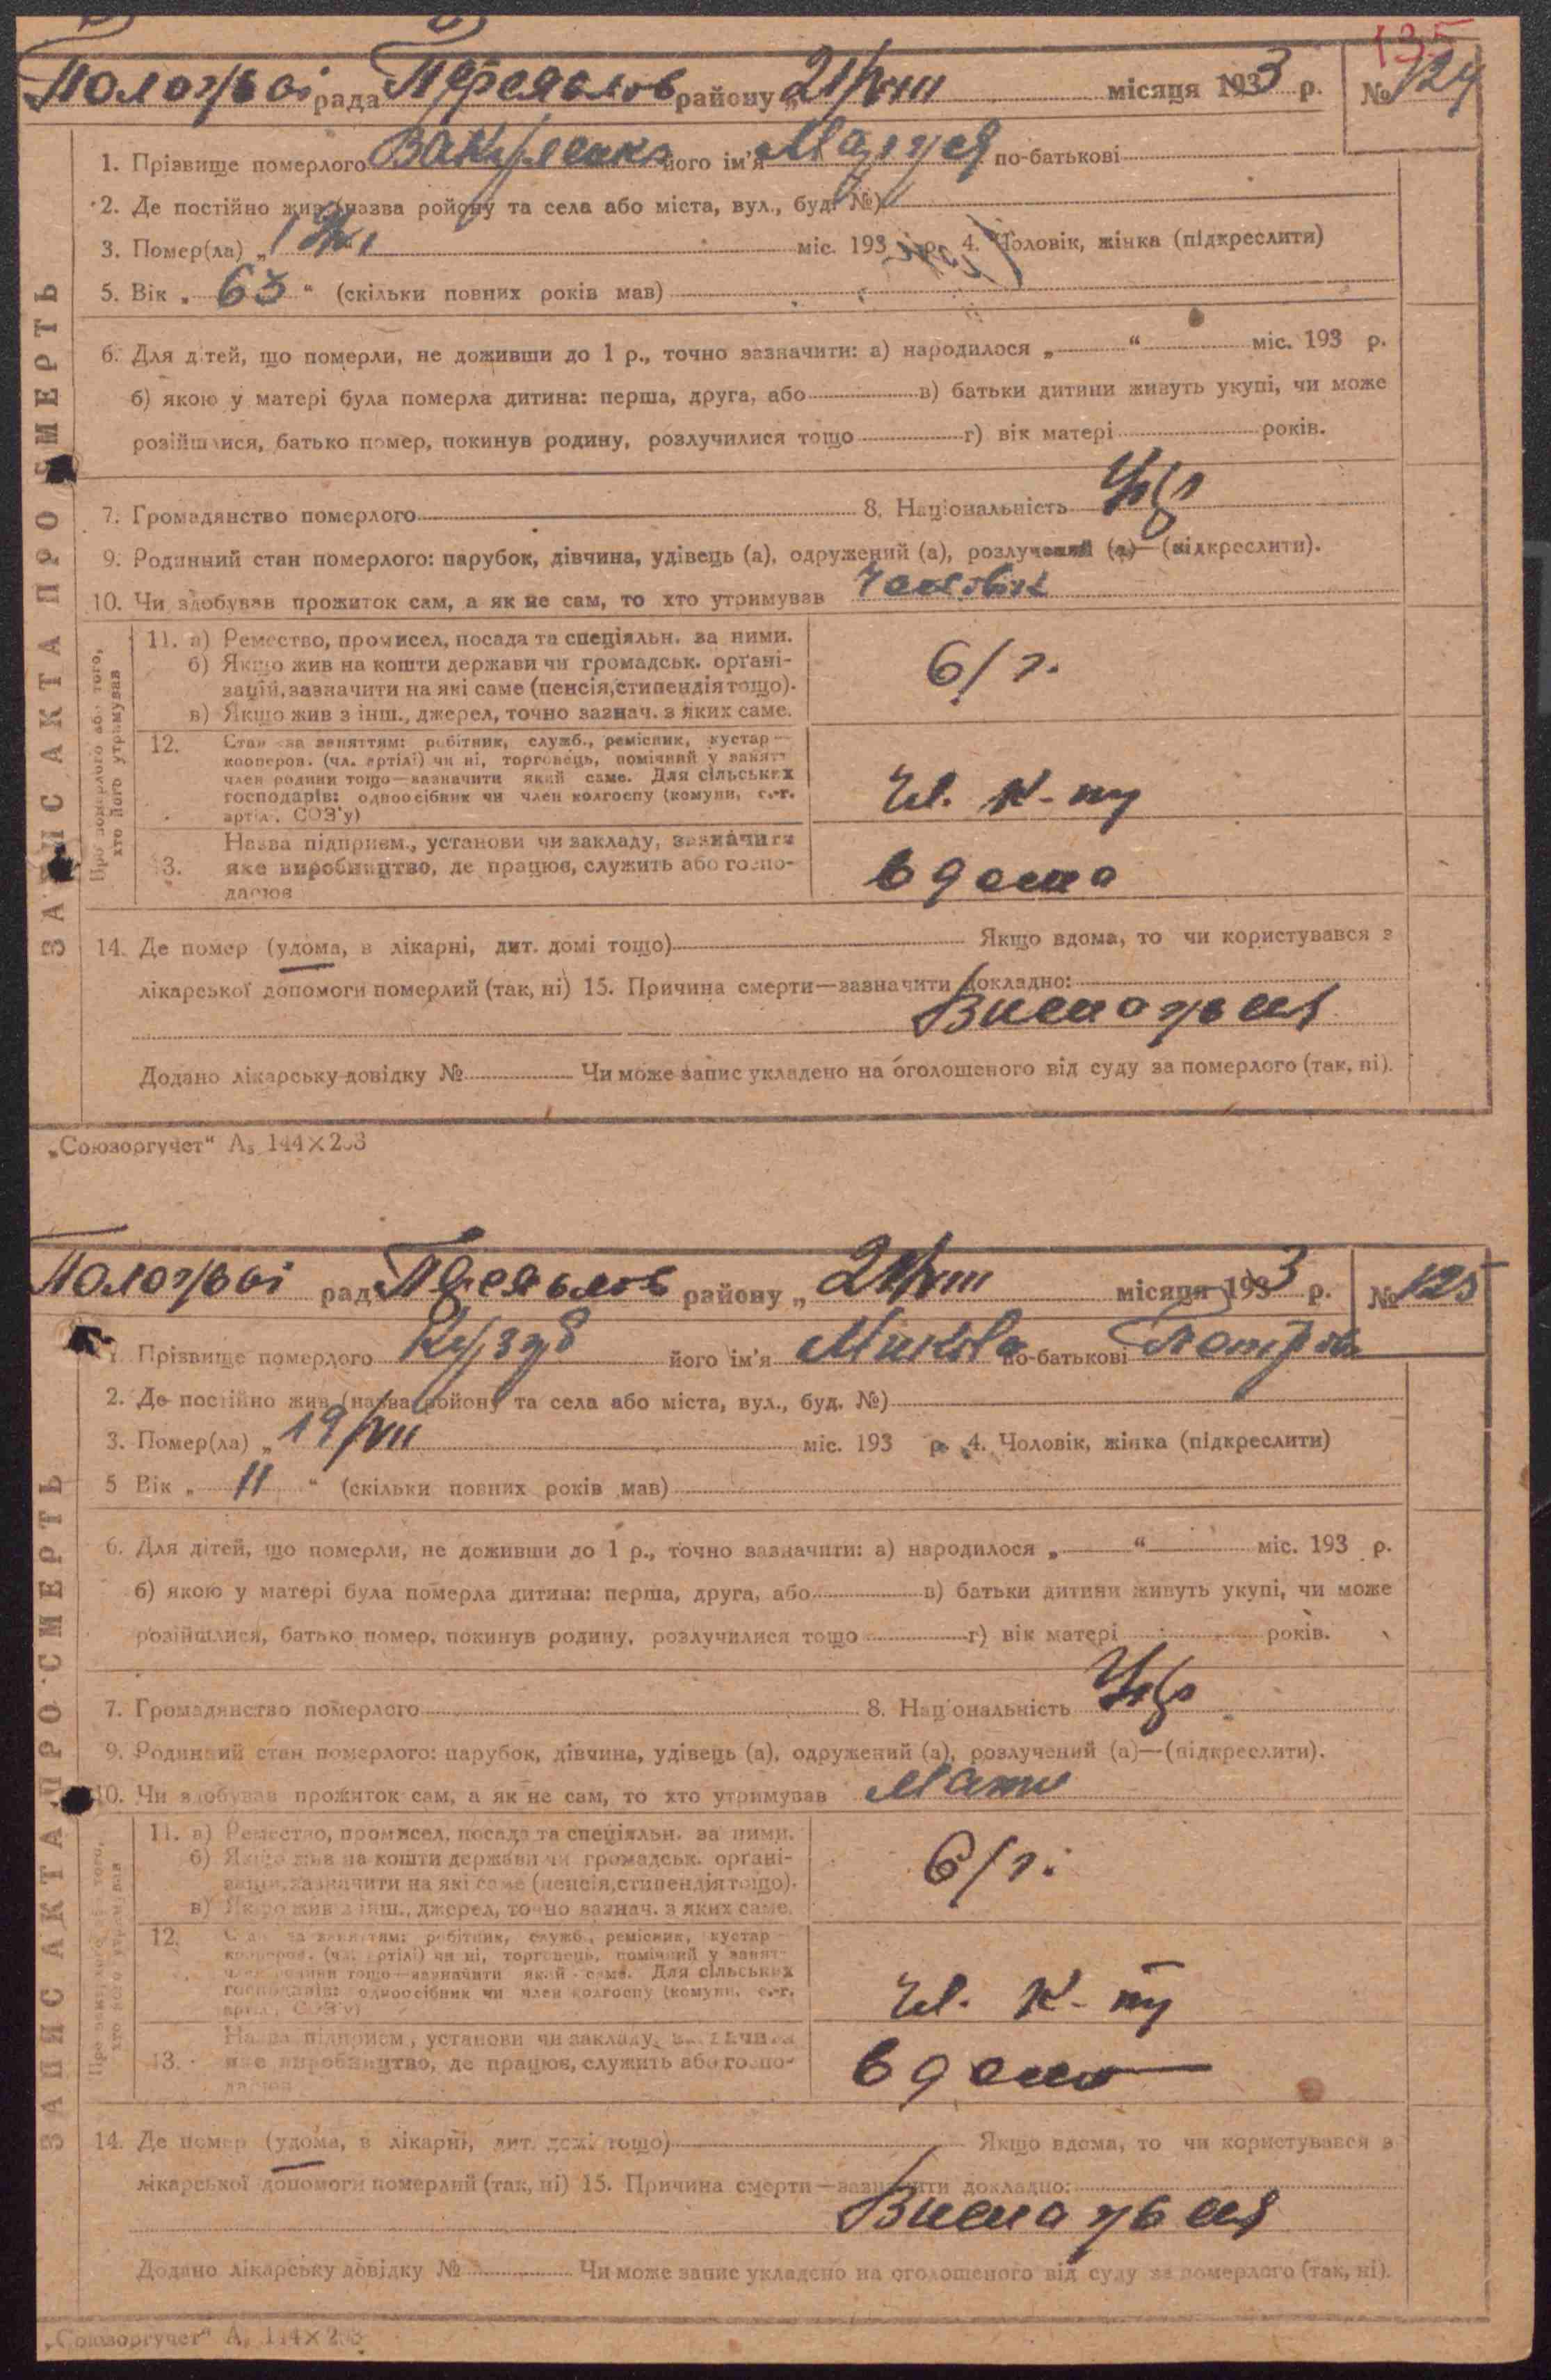 135
рада Переяслов району „ 21/VIII місяця 1933 р. № 124
ЗАПИС АКТА ПРО СМЕРТЬ
1. Прізвище померлого Вакуленко його ім'я Маруся по-батькові
2. Де постійно жив (назва ройону та села або міста, вул., буд. №)
3. Помер(ла) „ міс. 193 р. 4. Чоловік, жінка (підкреслити)
5. Вік „ 63 “ (скільки повних років мав)
6. Для дітей, що померли, не доживши до 1 р., точно зазначити: а) народилося „ “ міс. 193 р.
б) якою у матері була померла дитина: перша, друга, або в) батьки дитини живуть укупі, чи може
розійшлися, батько помер, покинув родину, розлучилися тощо г) вік матері років.
7. Громадянство померлого 8. Національність Укр
9. Родинний стан померлого: парубок, дівчина, удівець (а), одружений (а), розлучений (а)—(підкреслити).
10. Чи здобував прожиток сам, а як не сам, то хто утримував Чоловік
Про померлого або того, хто його утримував
11. а) Ремество, промисел, посада та спеціяльн. за ними.
б) Якщо жив на кошти держави чи громадськ. органі-
зацій, зазначити на які саме (пенсія, стипендія тощо).
в) Якщо жив з інш., джерел, точно зазнач. з яких саме.
б/г.
12. Стан за заняттям: робітник, служб., ремісник, кустар—
кооперов. (чл. артілі) чи ні, торговець, помічний у занятт
член родини тощо—зазначити який саме. Для сільських
господарів: одноосібник чи член колгоспу (комуни, с.-г.
артілі, СОЗ'у)
Чл. к-ту
13. Назва підприєм., установи чи закладу, зазначити
яке виробництво, де працює, служить або госпо-
дарює
вдома
14. Де помер (удома, в лікарні, дит. домі тощо) Якщо вдома, то чи користувався з
лікарської допомоги померлий (так, ні) 15. Причина смерти—зазначити докладно:
Додано лікарську довідку № Чи може запис укладено на оголошеного від суду за померлого (так, ні).
„Союзоргучет“ А₅ 144×203
рад Переяслов району „ 21/VIII місяця 1933 р. № 125
ЗАПИС АКТА ПРО СМЕРТЬ
1. Прізвище померлого Кузуб його ім'я Микола по-батькові Петров
2. Де постійно жив (назва ройону та села або міста, вул., буд. №)
3. Помер(ла) „ 19/VII міс. 193 р. 4. Чоловік, жінка (підкреслити)
5 Вік „ 11 “ (скільки повних років мав)
6. Для дітей, що померли, не доживши до 1 р., точно зазначити: а) народилося „ “ міс. 193 р.
б) якою у матері була померла дитина: перша, друга, або в) батьки дитини живуть укупі, чи може
розійшлися, батько помер, покинув родину, розлучилися тощо г) вік матері років.
7. Громадянство померлого 8. Національність Укр
9. Родинний стан померлого: парубок, дівчина, удівець (а), одружений (а), розлучений (а)—(підкреслити).
10. Чи здобував прожиток сам, а як не сам, то хто утримував Мати
Про померлого або того, хто його утримував
11. а) Ремество, промисел, посада та спеціяльн. за ними.
б) Якщо жив на кошти держави чи громадськ. органі-
зацій, зазначити на які саме (пенсія, стипендія тощо).
в) Якщо жив з інш., джерел, точно зазнач. з яких саме.
б/г.
12. Стан за заняттям: робітник, служб., ремісник, кустар—
кооперов. (чл. артілі) чи ні, торговець, помічний у занят-
член родини тощо—зазначити який саме. Для сільських
господарів: одноосібник чи член колгоспу (комуни, с.-г.
артілі, СОЗ'у)
Чл. к-ту
13. Назва підприєм., установи чи закладу, зазначити
яке виробництво, де працює, служить або госпо-
дарює
вдома
14. Де помер (удома, в лікарні, дит. домі тощо) Якщо вдома, то чи користувався з
лікарської допомоги померлий (так, ні) 15. Причина смерти—зазначити докладно:
Додано лікарську довідку № Чи може запис укладено на оголошеного від суду за померлого (так, ні).
„Союзоргучет“ А₅ 144×203